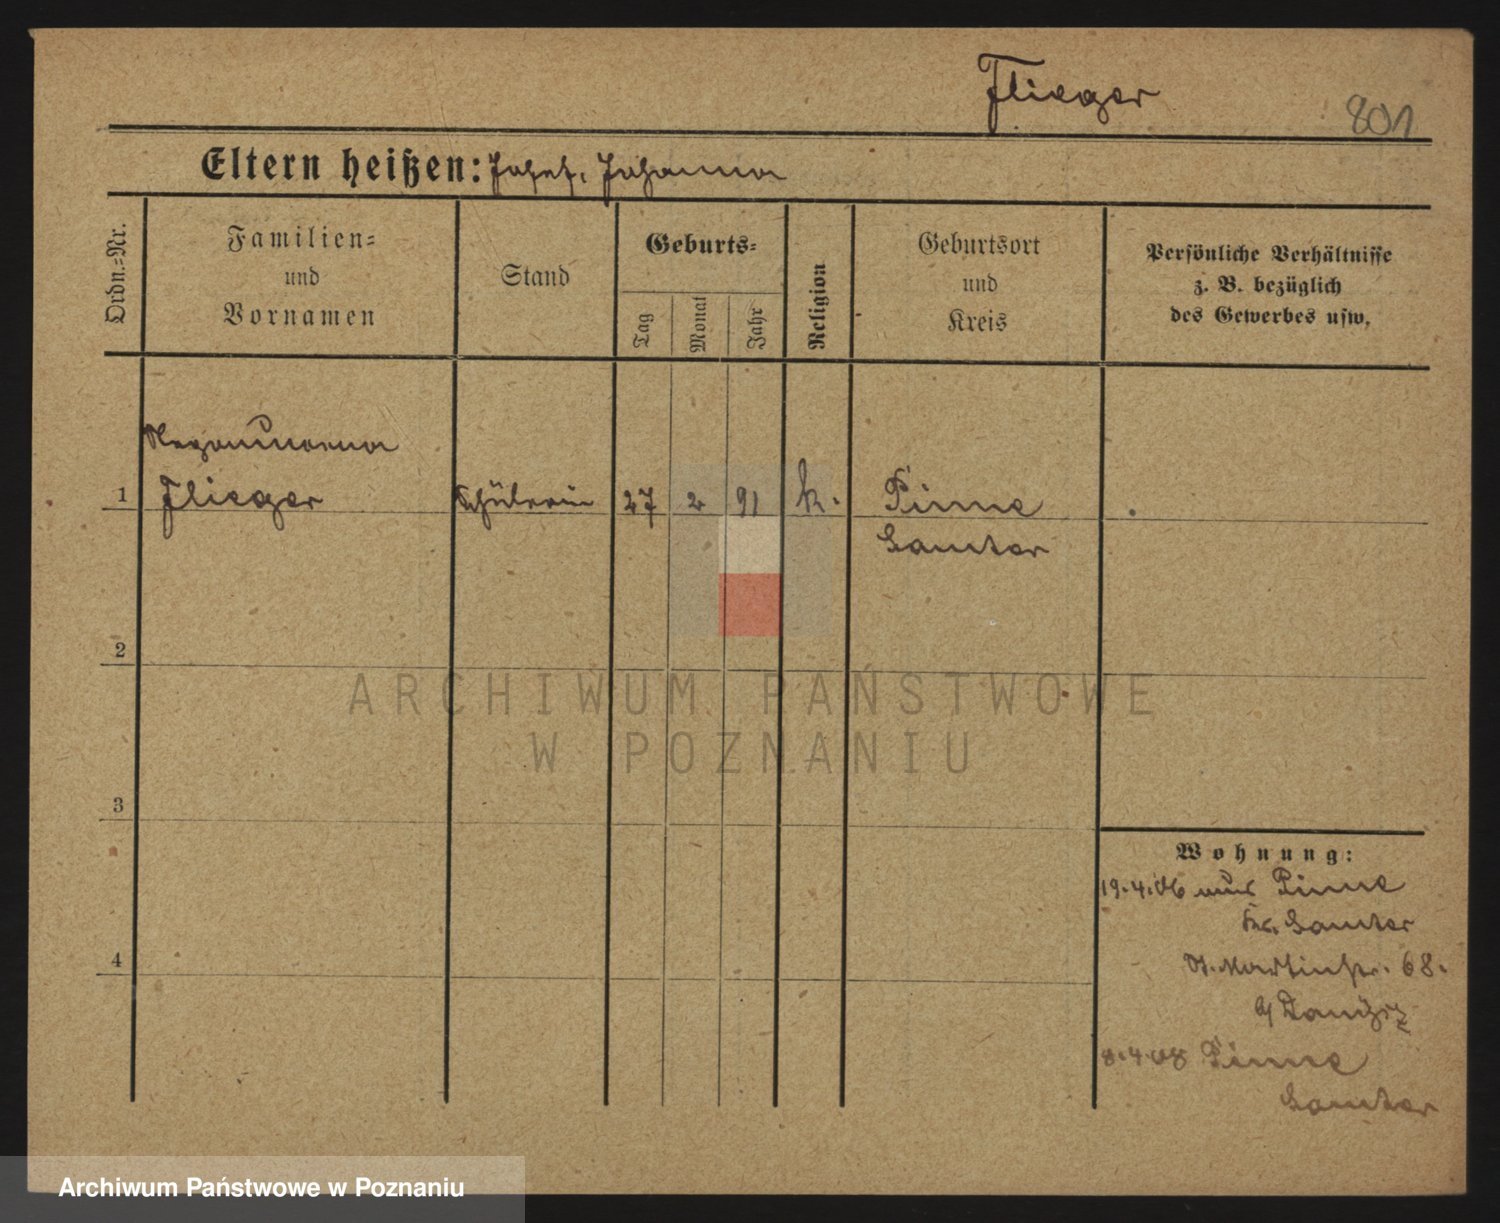 Flieger
801
Eltern heißen: Josef, Johanna
Ordn.-Nr.
Familien-
und
Vornamen
Stand
Geburts-
Tag
Monat
Jahr
Religion
Geburtsort
und
Kreis
Persönliche Verhältnisse
z. B. bezüglich
des Gewerbes usw.
1
Flieger
Schülerin
27
2
91
k.
Pinne
Samter
2
3
4
Wohnung:
19.4.06 aus Pinne
Kr. Samter
St. Martinstr. 68.
8.4.08 Pinne
Samter
ARCHIWUM PAŃSTWOWE
W POZNANIU
Archiwum Państwowe w Poznaniu